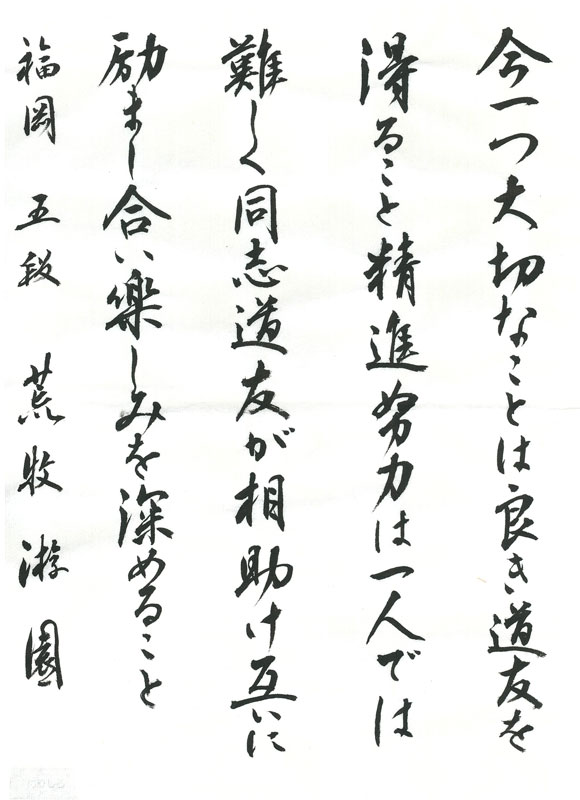 今一つ大切なことは良き道友を
得ること精進努力は一人では
難しく同志道友が相助け互いに
励まし合い楽しみを深めること
福岡 五段 荒牧游園